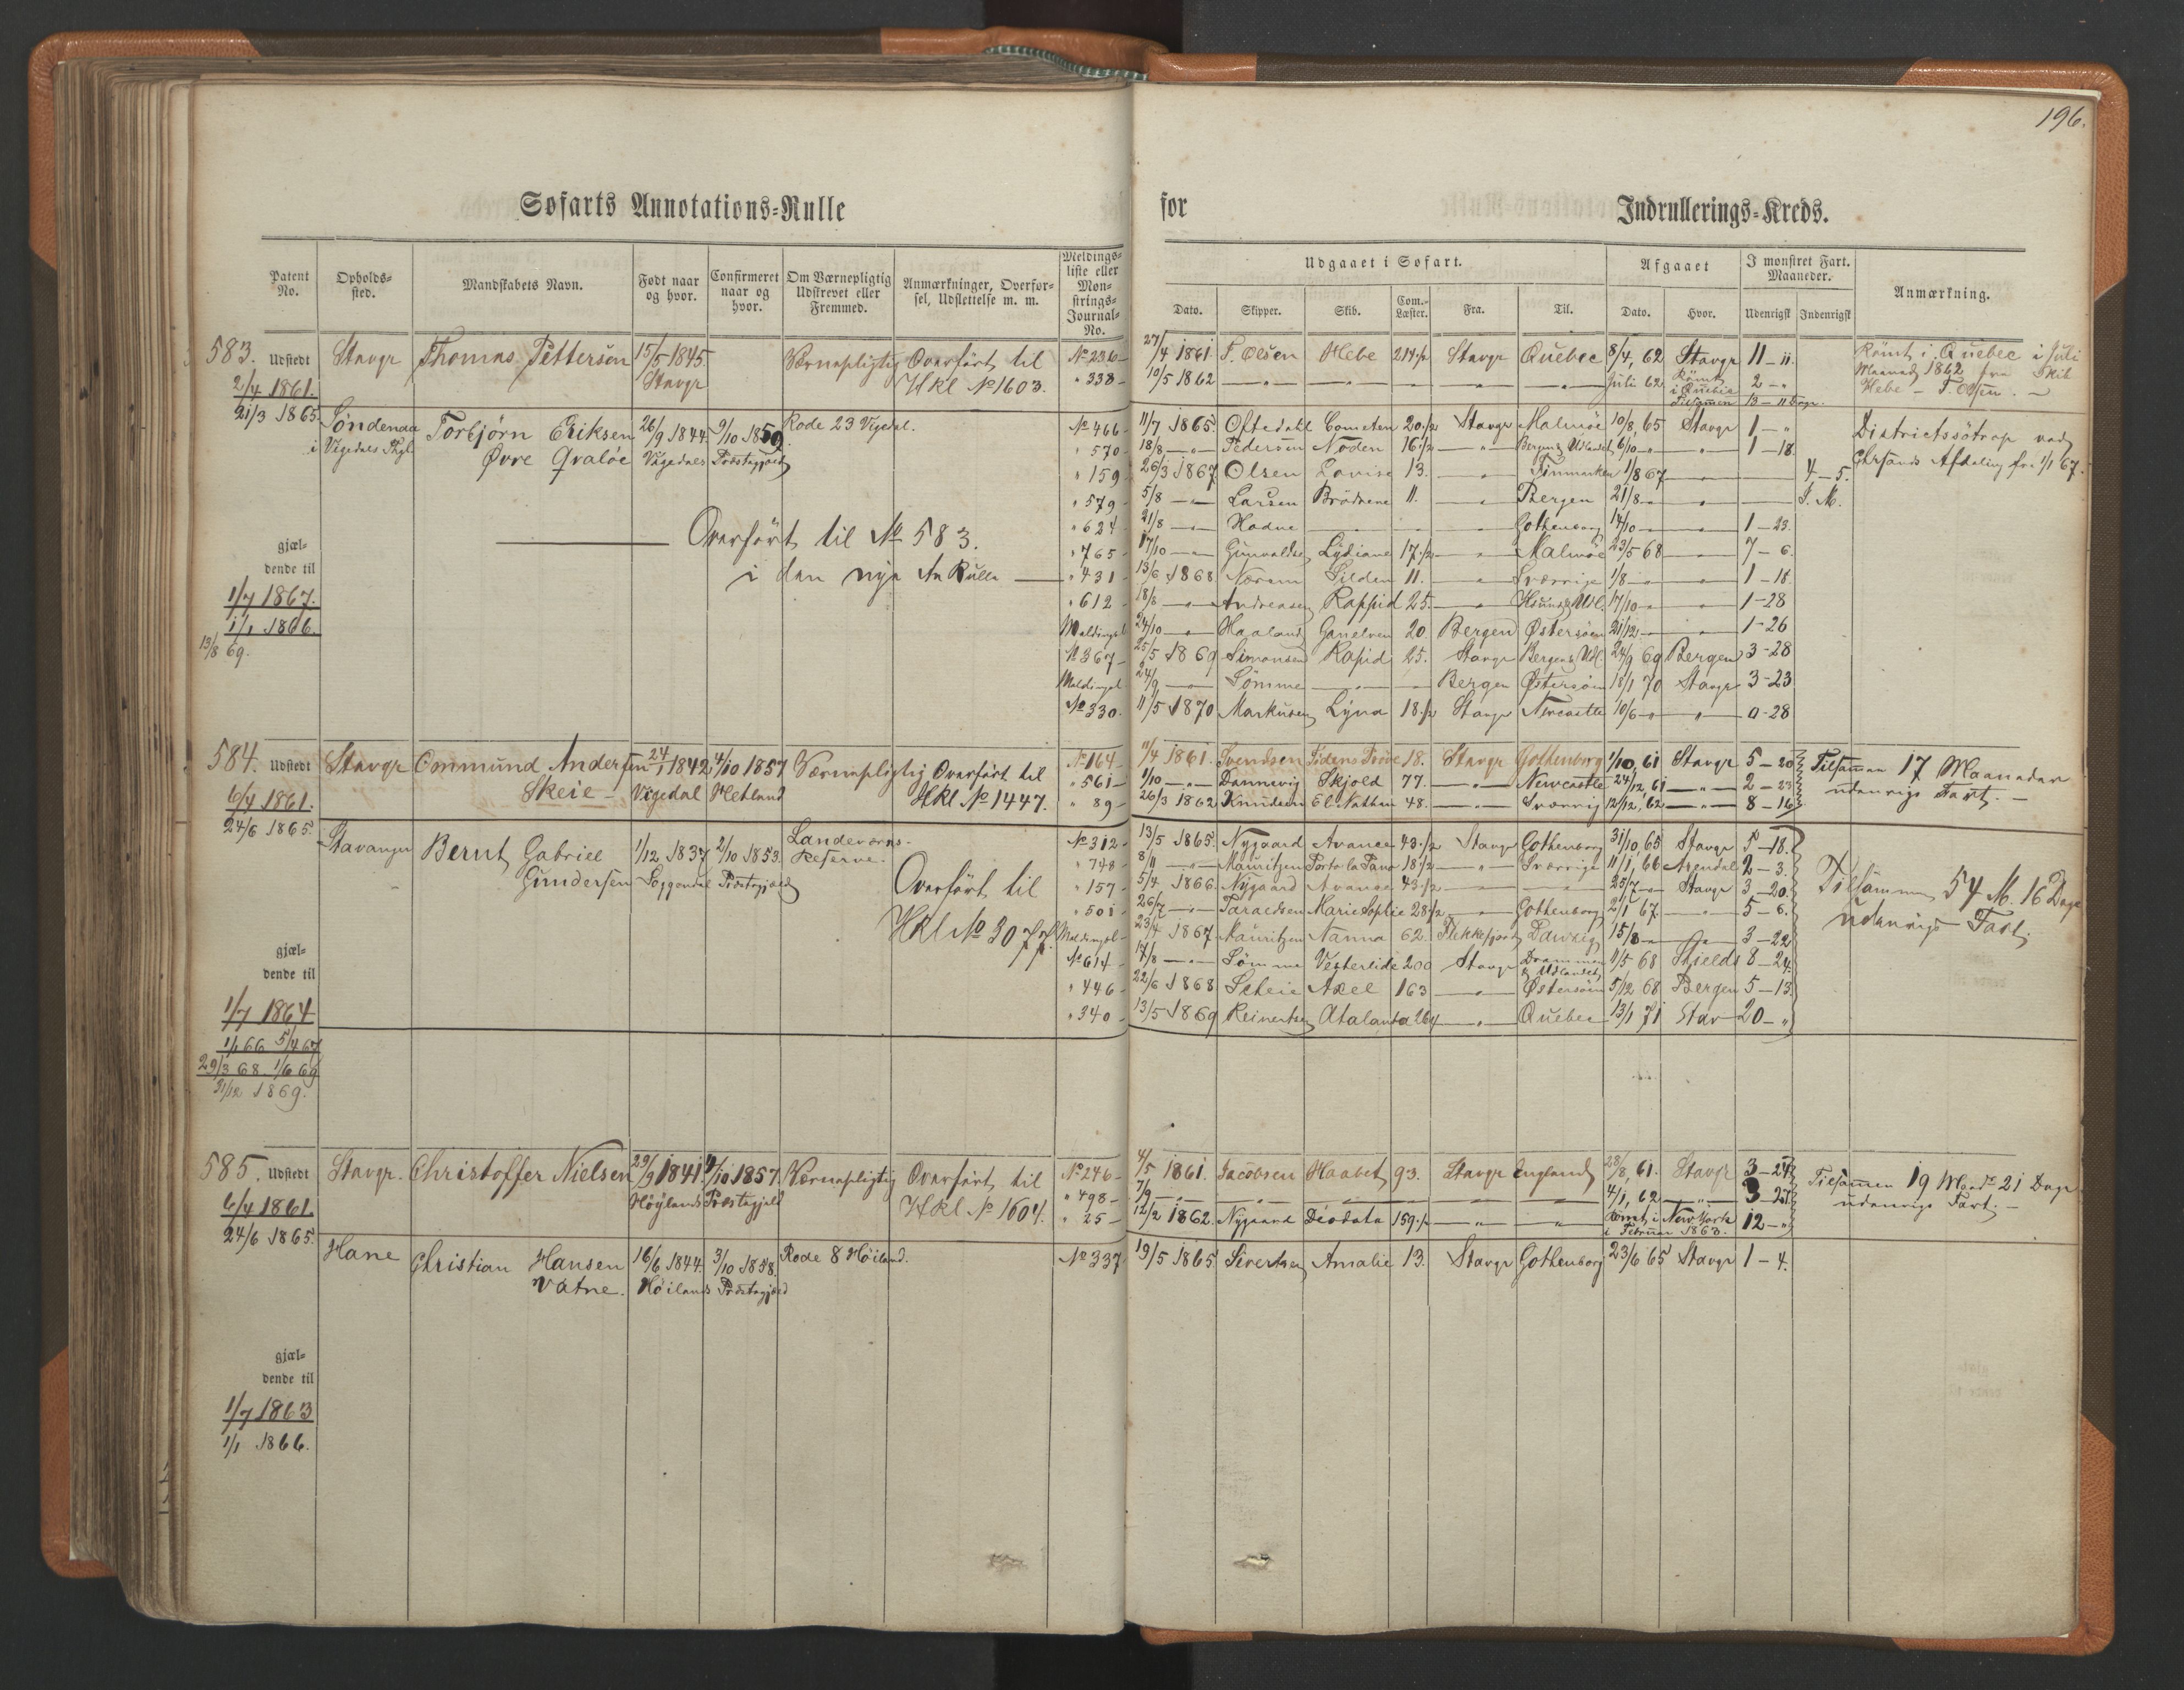 196.
Søfarts Annotations-Rulle for Indrullerings-Kreds.
Patent No. Opholds-sted. Mandskabets Navn. Født naar og hvor. Confirmeret naar og hvor. Om Værnepligtig Udskrevet eller Fremmed. Anmærkninger, Overfør-sel, Udslettelse m. m. Meldings-liste eller Mon-strings-Journal-No.
Udgaaet i Søfart. Afgaaet I monstret Fart. Maaneder. Anmærkning.
Dato. Skipper. Skib. Com.-Læster. Fra. Til. Dato. Hvor. Udenrigsk Indenrigsk
583. Udstedt Stavgr Thomas Pettersen 15/5 1845. Værnepligtig Overført til No 236 27/4 1861 T. Olsen Hebe 214 1/2 Stavgr Quebec 8/4, 62 Stavgr 11 – 11. Rømt i Quebec i Juli
2/4 1861. Stavgr Hkl No 1603. " 338 10/5 1862 — " — Juli 62 Rømt i Quebec 2 – " Maaned 1862 fra Skib
Tilsammen 13 – 11 Dage. Hebe – T. Olsen. –
21/3 1865. Søndenaa Torbjørn Eriksen 26/9 1844. 9/10 1859. Rode 23 Vigedal. No 466 11/7 1865. Oftedahl Cometen 20 1/2 Stavgr Malmøe 10/8, 65 Stavgr 1 – " Districtssøtrop ved
i Vigedals Thgl Øvre Qvaløe Vigedals Præstegjæld " 570 18/8 — " — Pedersen Noden 16 1/2 — " — Bergen & Udlandet 6/10 — " — 1 – 18. Chrsands Afdeling fra 1/1 67.
" 159 26/3 1867 Olsen Lovise 13. — " — Finmarken 1/8 67 — " — 4 – 5.
" 579 5/8 — " — Larsen Brødrene 11. — " — Bergen 21/8 — " — I. M.
Overført til No 583. " 624 21/8 — " — Hadne — " — Gothenborg 14/10 — " — 1 – 23.
gjæl-
dende til
i den nye An Rulle — " 765 17/10 — " — Gunvaldsen Lydiane 17 1/2 — " — Malmøe 23/5 68 — " — 7 – 6.
" 431 13/6 1868 Næsem Silden 11. — " — Sverrige 1/8 — " — 1 – 18.
1/7 1867. " 612 18/8 — " — Andreasen Rappid 25. — " — 17/10 — " — 1 – 28
1/1 1866. Meldingsl 24/10 — " — Haaland Ganelven 20. Bergen Østersøen 21/12 — " — 1 – 26
13/8 69. No 367 25/5 1869 Simonsen Rapid 25. Stavgr Bergen & Udl. 24/9 69 Bergen 3 – 28
Meldingsl 24/9 — " — Sømme — " — Bergen Østersøen 18/1 70 Stavgr 3 – 23
No 330. 11/5 1870 Markusen Lyna 18 1/2 Stavgr Newcastle 10/6 — " — 0 – 28
584. Udstedt Stavgr Ommund Andersen 24/1 1842 4/10 1857 Værnepligtig Overført til No 164 11/4 1861. Svendsen Tidens Prøve 18. Stavgr Gothenborg 1/10, 61 Stavgr 5 – 20 Tilsammen 17 Maaneder
6/4 1861. Skeie – Vigedal Hetland Hkl No 1447. " 561 1/10 — " — Dannevig Skjold 77. — " — Newcastle 24/12, 61 — " — 2 – 23 udenrigs Fart. –
" 89 26/3 1862 Knudsen El. Nathan 48. — " — Sverrig 12/12, 62 — " — 8 – 16
24/6 1865. Stavanger Bernt Gabriel 1/12 1837 2/10 1853. Landeværns- No 312 13/5 1865. Nygaard Avance 43 1/2 Stavgr Gothenborg 31/10, 65 Stavgr 5 – 18.
Gundersen Soggendal Præstegjæld Reserve. " 748 8/11 — " — Mauritzen 18 1/2 — " — Sverrige 11/1, 66 Arendal 2 – 3.
Overført til " 157 5/4 1866. Nygaard Avance 43 1/2 — " — 25/7 — " — Stavgr 3 – 20. Tilsammen 54 M. 16 Dage
Hkl No 3077. " 501 26/7 — " — Taraldsen Marie Sophie 28 1/2 — " — Gothenborg 2/1 67. — " — 5 – 6. udenrigs Fart.
gjæl-
dende til
Meldingsl 23/4 1867. Mauritzen Nanna 62. Flekkefjord Danzig 15/8 — " — 3 – 22
No 614 17/8 — " — Sømme Vesterlide 200 Stavgr Drammen & Udlandet 11/5 68 Shields 8 – 24.
1/7 1864 " 446 22/6 1868 Scheie Axel 163 — " — Østersøen 5/12 68 Bergen 5 – 13.
1/1 66 5/4 67 " 340 13/5 1869 Reinertsen Atalanta 264 — " — Quebec 13/1 71 Stav 20 – "
29/3 68. 1/6 69
31/12 1869.
585. Udstedt Stavgr. Christoffer Nielsen 29/9 1841. 4/10 1857. Værnepligtig Overført til No 246 4/5 1861. Jacobsen Haabet 93. Stavgr England 28/8, 61. Stavgr 3 – 24 Tilsammen 19 Mand 21 Dage
6/4 1861. Høylands Præstegjæld Hkl No 1604. " 498 7/9 — " — 4/1, 62 — " — 3 – 27 udenrigs Fart. –
" 25 12/2 1862. Nygaard Deodata 159 1/2 — " — Rømt i New York i Februar 1863. 12 – "
24/6 1865. Hane Christian Hansen 16/6 1844. 3/10 1858. Rode 8 Høiland. No 337 19/5 1865 Sivertsen Amalie 13. Stavgr Gothenborg 23/6 65 Stavgr 1 – 4.
Vatne. Høilands Præstegjæld
gjæl-
dende til
1/7 1863
1/1 1866.